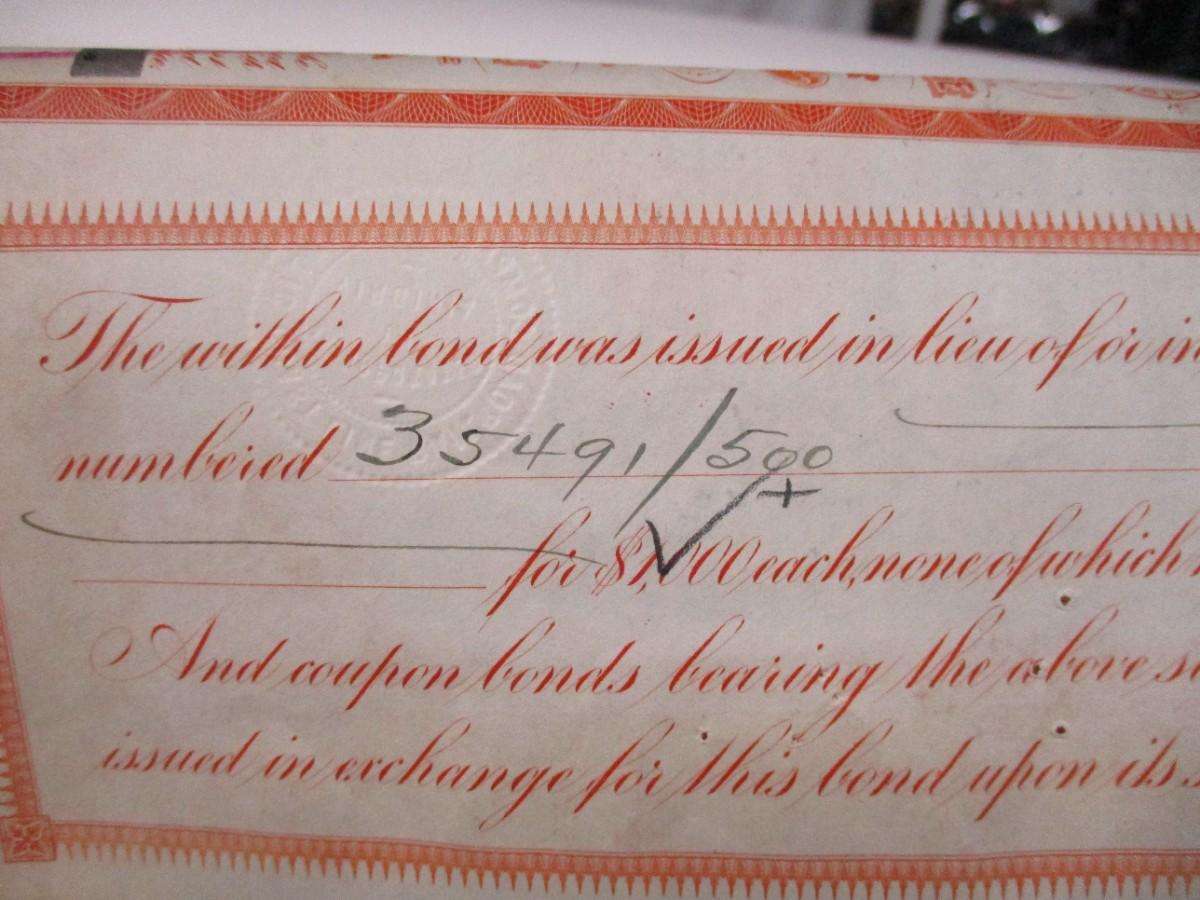 The within bond was issued in lieu of or in
numbered 35491/500
for $1,000 each, none of which
And coupon bonds bearing the above
issued in exchange for this bond upon its